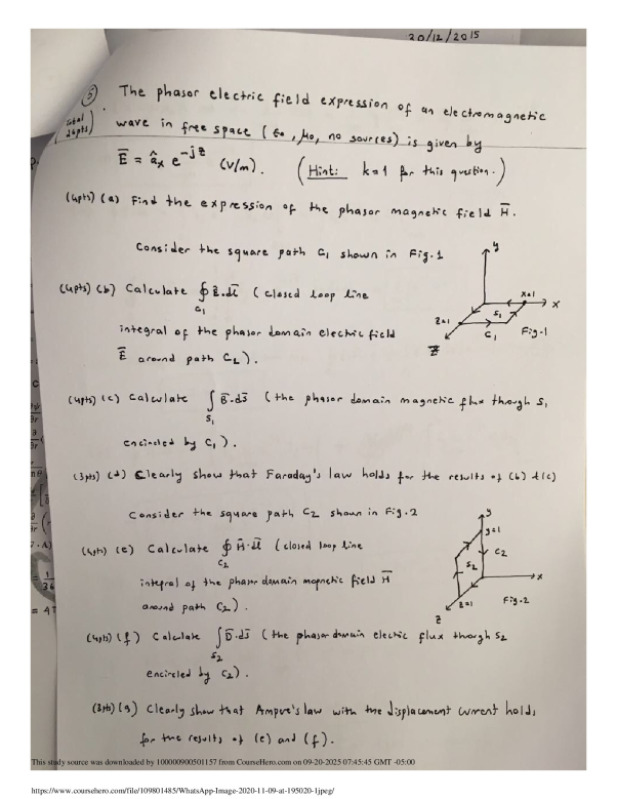 20/12/2015
(5) The phasor electric field expression of an electromagnetic
wave in free space (ε₀, μ₀, no sources) is given by
Ē = âₓ e^{-jz} (V/m). (Hint: k=1 for this question.)
(4pts) (a) Find the expression of the phasor magnetic field H̄.
Consider the square path C₁ shown in Fig.1
(4pts) (b) Calculate ∮_{C₁} Ē.dl̄ (closed loop line
integral of the phasor domain electric field
Ē around path C₁).
y
x=1
x
S₁
z=1
C₁
Fig-1
z
(4pts) (c) Calculate ∫_{S₁} B̄.ds̄ (the phasor domain magnetic flux through S₁
encircled by C₁).
(3pts) (d) Clearly show that Faraday's law holds for the results of (b) & (c)
Consider the square path C₂ shown in Fig.2
(4pts) (e) Calculate ∮_{C₂} H̄.dl̄ (closed loop line
integral of the phasor domain magnetic field H̄
around path C₂).
y
y=1
C₂
S₂
x
z=1
Fig-2
z
(4pts) (f) Calculate ∫_{S₂} D̄.ds̄ (the phasor domain electric flux through S₂
encircled by C₂).
(3pts) (g) Clearly show that Ampere's law with the displacement current holds
for the results of (e) and (f).
This study source was downloaded by 100000900501157 from CourseHero.com on 09-20-2025 07:45:45 GMT -05:00
https://www.coursehero.com/file/109801485/WhatsApp-Image-2020-11-09-at-195020-1jpeg/